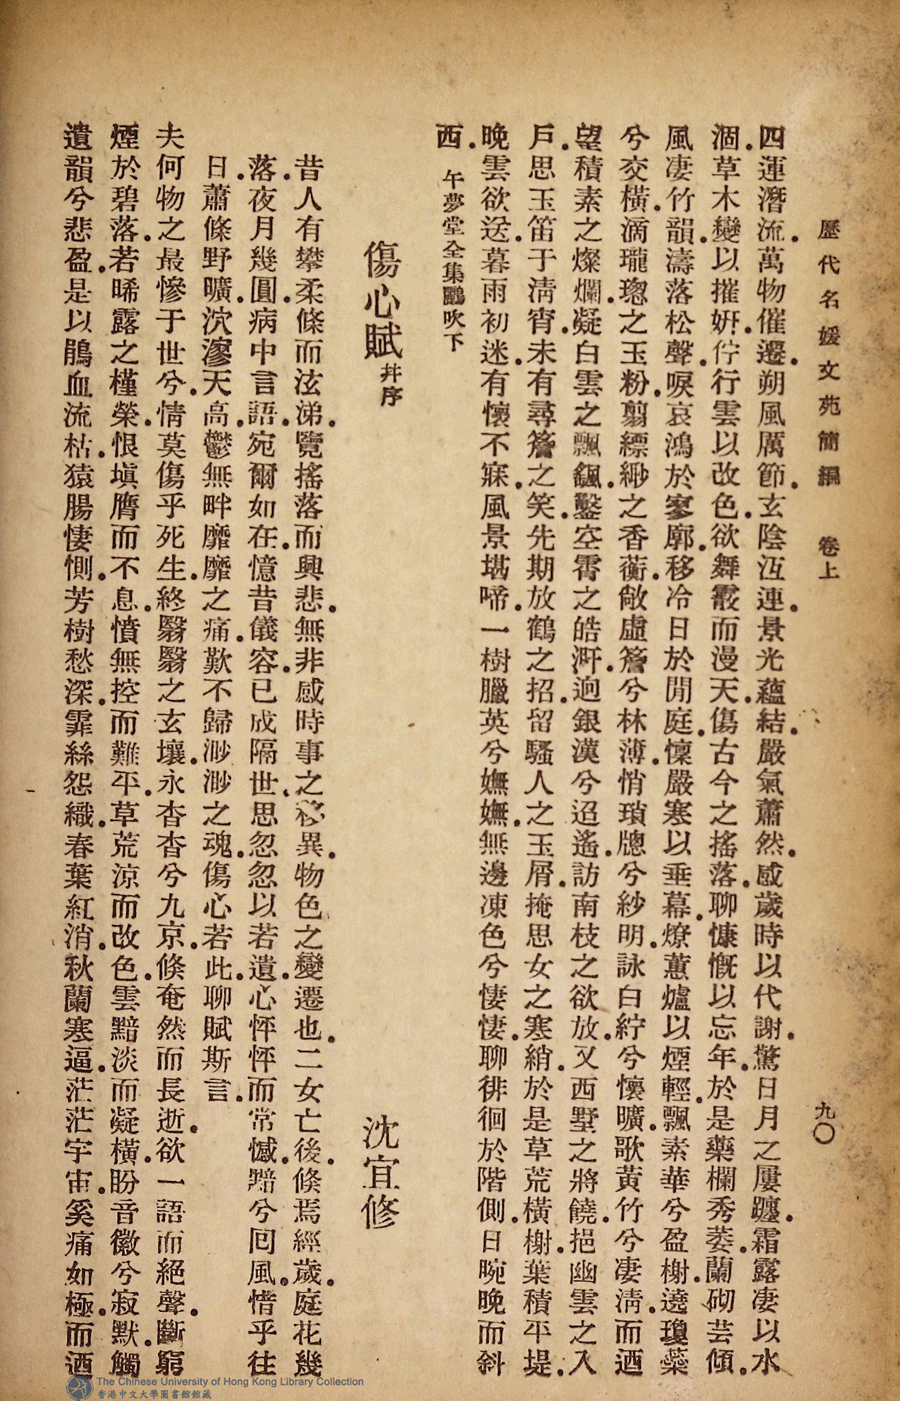 歷代名媛文苑簡編　卷上
九〇
四運潛流．萬物催遷．朔風厲節．玄陰沍連．景光蘊結．嚴氣蕭然．感歲時以代謝．驚日月之屢躔．霜露凄以水
涸．草木變以摧姸．佇行雲以改色．欲舞霰而漫天．傷古今之搖落．聊慷慨以忘年．於是藥欄秀萎．蘭砌芸傾．
風凄竹韻．濤落松聲．唳哀鴻於寥廓．移冷日於閒庭．懍嚴寒以垂幕．燎薰爐以煙輕．飄素華兮盈榭．遶瓊蘂
兮交橫．滴瓏璁之玉粉．翦縹緲之香蘅．敞虛簷兮林薄．悄瑣牕兮紗明．詠白紵兮懷曠．歌黃竹兮凄淸．而迺
望積素之燦爛．凝白雲之飄颻．鑿空霄之皓涆．迥銀漢兮迢遙．訪南枝之欲放．又西墅之將饒．挹幽雲之入
戶．思玉笛于淸宵．未有尋簷之笑．先期放鶴之招．留騷人之玉屑．掩思女之寒綃．於是草荒橫榭．葉積平堤．
晚雲欲送．暮雨初迷．有懷不寐．風景堪啼．一樹臘英兮嫵嫵．無邊凍色兮悽悽．聊徘徊於階側．日晼晚而斜
西．午夢堂全集鸝吹下
傷心賦幷序　沈宜修
昔人有攀柔條而泫涕．覽搖落而興悲．無非感時事之移異．物色之變遷也．二女亡後．倏焉經歲．庭花幾
落．夜月幾圓．病中言語．宛爾如在．憶昔儀容．已成隔世．思忽忽以若遺．心怦怦而常憾．黯兮囘風．惜乎往
日．蕭條野曠．泬漻天高．鬱無畔靡靡之痛．歎不歸渺渺之魂．傷心若此．聊賦斯言．
夫何物之最慘于世兮．情莫傷乎死生．終翳翳之玄壤．永杳杳兮九京．倏奄然而長逝．欲一語而絕聲．斷窮
煙於碧落．若晞露之槿榮．恨塡膺而不息．憤無控而難平．草荒涼而改色．雲黯淡而凝橫．盼音徽兮寂默．觸
遺韻兮悲盈．是以鵑血流枯．猿腸悽惻．芳樹愁深．霏絲怨織．春葉紅消．秋蘭寒逼．茫茫宇宙．奚痛如極．而迺
The Chinese University of Hong Kong Library Collection
香港中文大學圖書館館藏